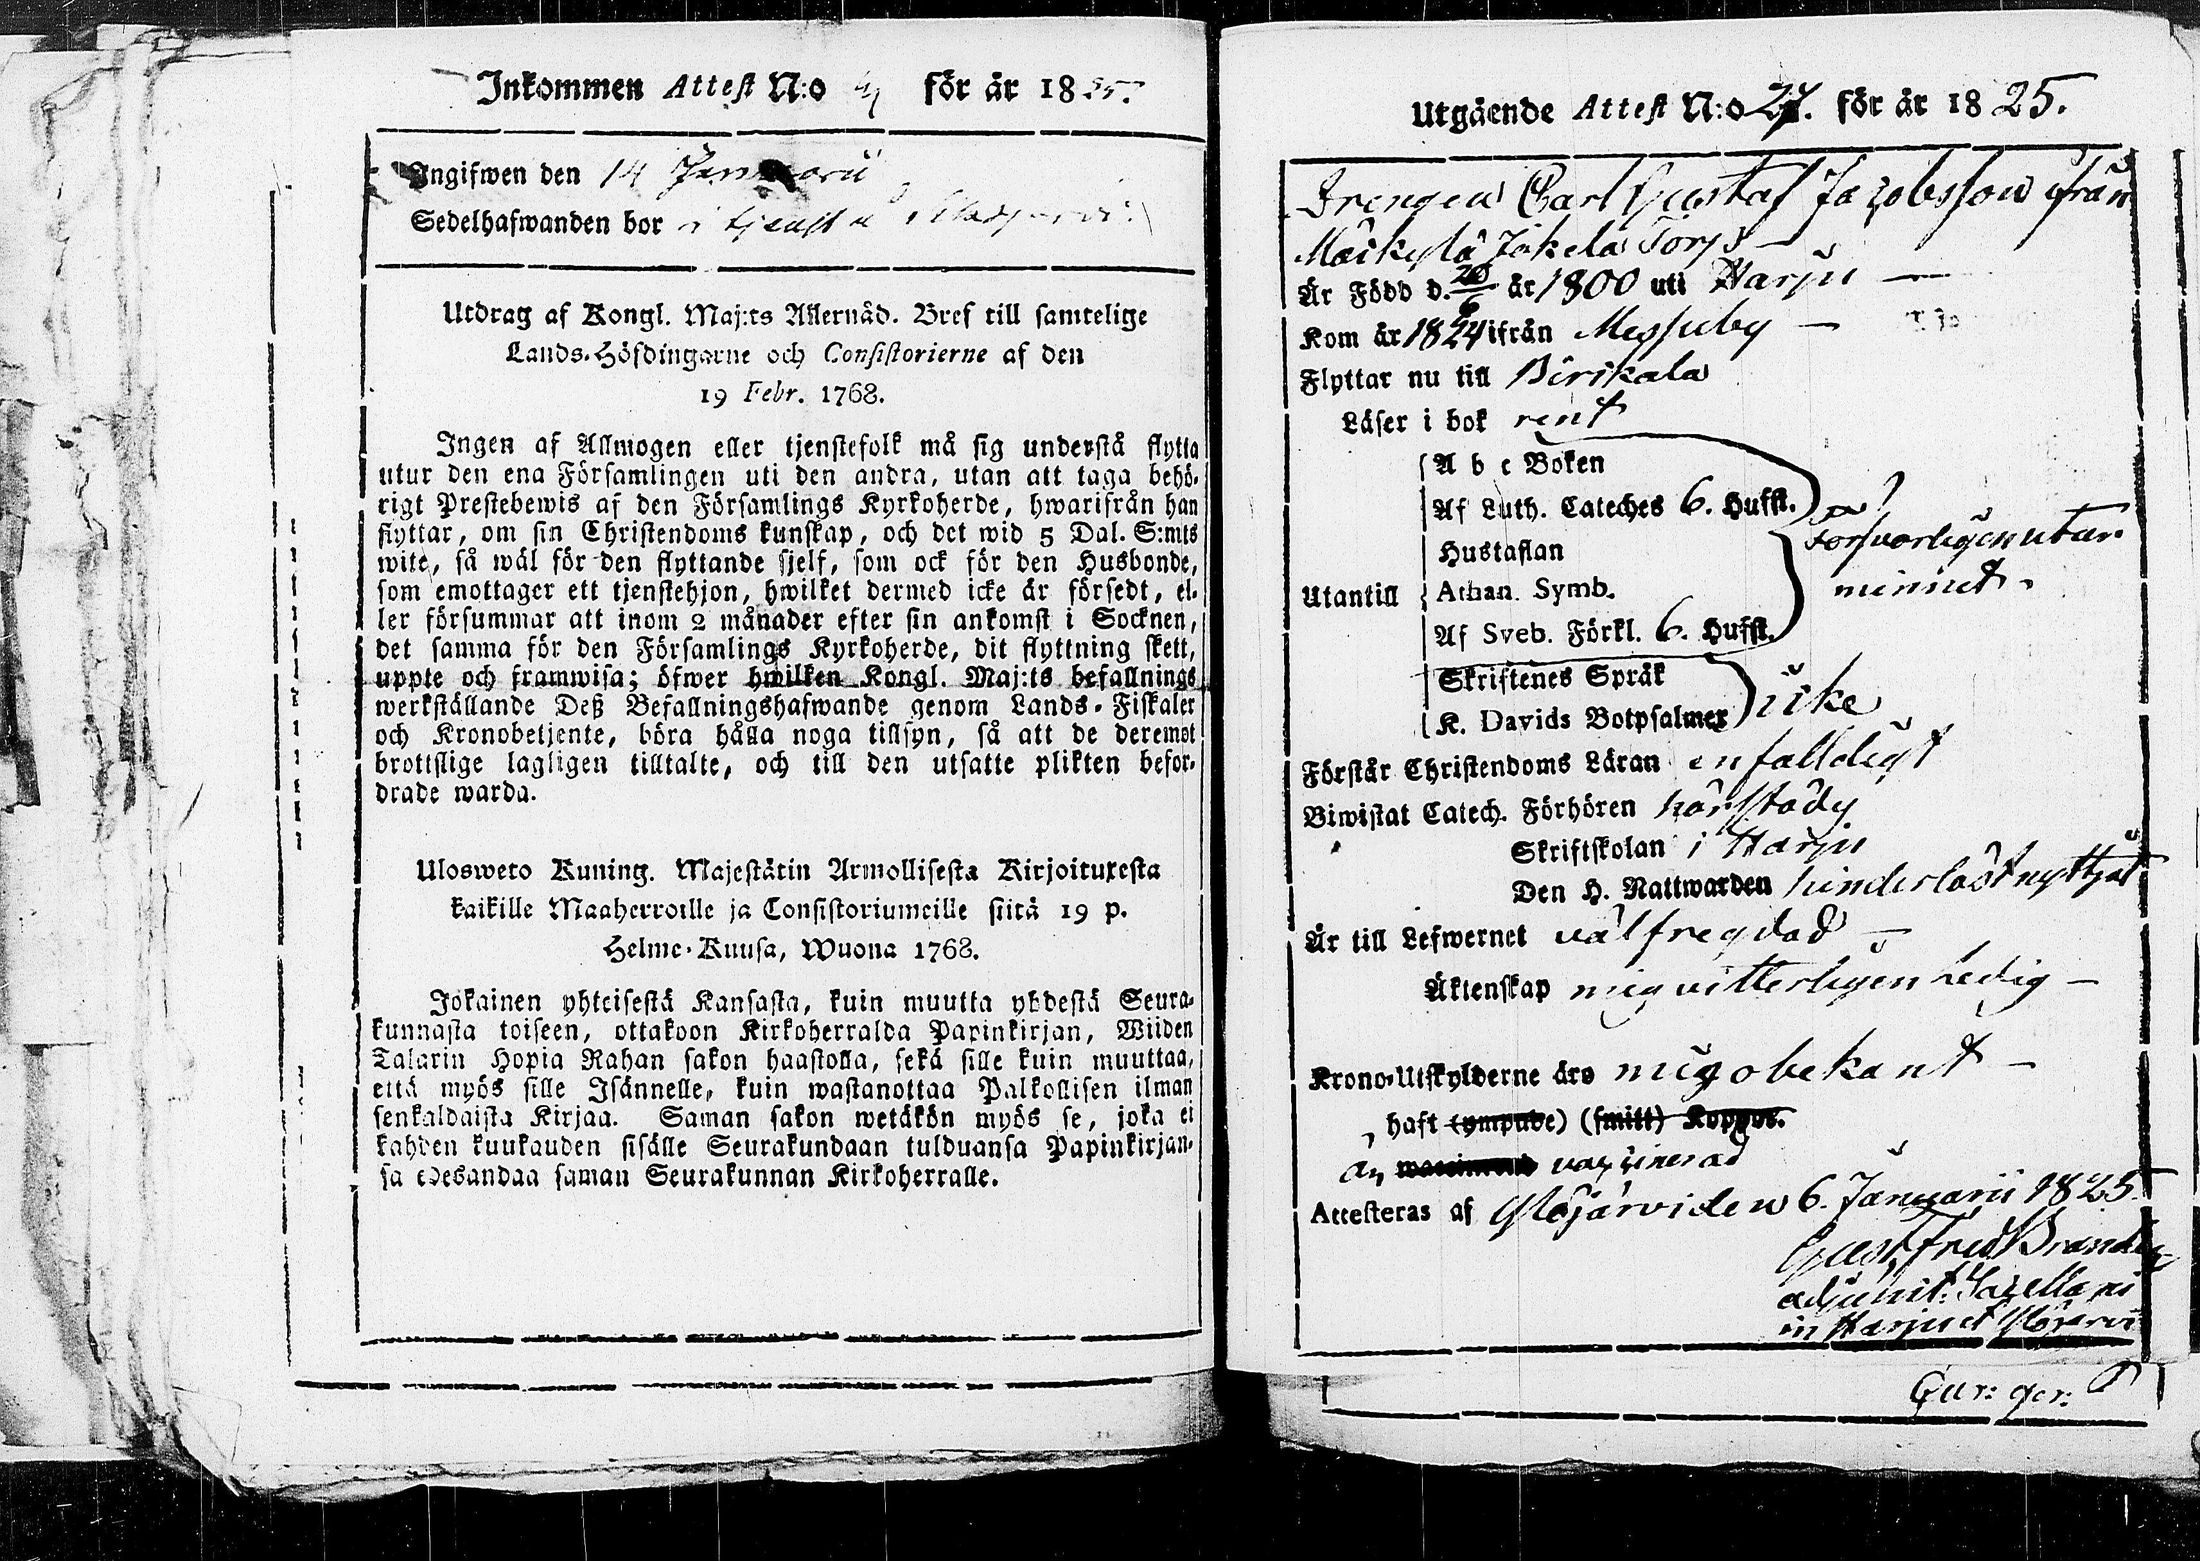 Inkommen Attest N:o 4 för år 1825.
Ingifwen den 14 Januarii
Sedelhafwanden bor i tjenst å
Utdrag af Kongl. Maj:ts Allernåd. Bref till samtelige
Lands-Höfdingarne och Consistorierne af den
19 Febr. 1768.
Ingen af Allmogen eller tjenstefolk må sig understå flytta
utur den ena Församlingen uti den andra, utan att taga behö-
rigt Prestebewis af den Församlings Kyrkoherde, hwarifrån han
flyttar, om sin Christendoms kunskap, och det wid 5 Dal. S:mts
wite, så wäl för den flyttande sjelf, som ock för den Husbonde,
som emottager ett tjenstehjon, hwilket dermed icke är försedt, el-
ler försummar att inom 2 månader efter sin ankomst i Socknen,
det samma för den Församlings Kyrkoherde, dit flyttning skett,
uppte och framwisa; öfwer hwilken Kongl. Maj:ts befallnings
werkställande Deß Befallningshafwande genom Lands-Fiskaler
och Kronobetjente, böra hålla noga tillsyn, så att de deremot
brottslige lagligen tilltalte, och till den utsatte plikten befor-
drade warda.
Ulosweto Kuning. Majestätin Armollisesta Kirjoituxesta
kaikille Maaherroille ja Consistoriumeille siitä 19 p.
Helme-Kuusa, Wuona 1768.
Jokainen yhteisestä Kansasta, kuin muutta yhdestä Seura-
kunnasta toiseen, ottakoon Kirkoherralda Papinkirjan, Wiiden
Talarin Hopia Rahan sakon haastolla, sekä sille kuin muuttaa,
että myös sille Isännelle, kuin wastanottaa Palkollisen ilman
senkaldaista Kirjaa. Saman sakon wetäkön myös se, joka ei
kahden kuukauden sisälle Seurakundaan tulduansa Papinkirjan-
sa edesandaa saman Seurakunnan Kirkoherralle.
Utgående Attest N:o 27. för år 1825.
Drengen Carl Gustaf Jacobsson ifrån
Mäikylä Jåkela Torp –
Är Född d. 20/6 år 1800 uti Harju –
Kom år 1824 ifrån Messuby –
Flyttar nu till Birikala
Läser i bok rent
Utantill
A b c Boken
Af Luth. Cateches 6. Hufst.
Hustaflan
Athan. Symb.
Af Sveb. Förkl. 6. Hufst.
försvarligen utur
minnet.
Skriftenes Språk
K. Davids Botpsalmer
icke
Förstår Christendoms Läran enfalldigt
Biwistat Catech. Förhören härstädes
Skriftskolan i Harju
Den H. Nattwarden hinderlöst nyttjat
Är till Lefwernet välfregdad –
Äktenskap mig vitterligen Ledig –
Krono-Utskylderne äro mig obekant –
haft (ympade) (smitt) Koppor.
än vaccinerad
Attesteras af Ylöjärvi den 6. Januarii 1825.
Gust. Fred. Brander
adjunct: Sacellani
in Harju et Ylöjärvi
Cur: ger: